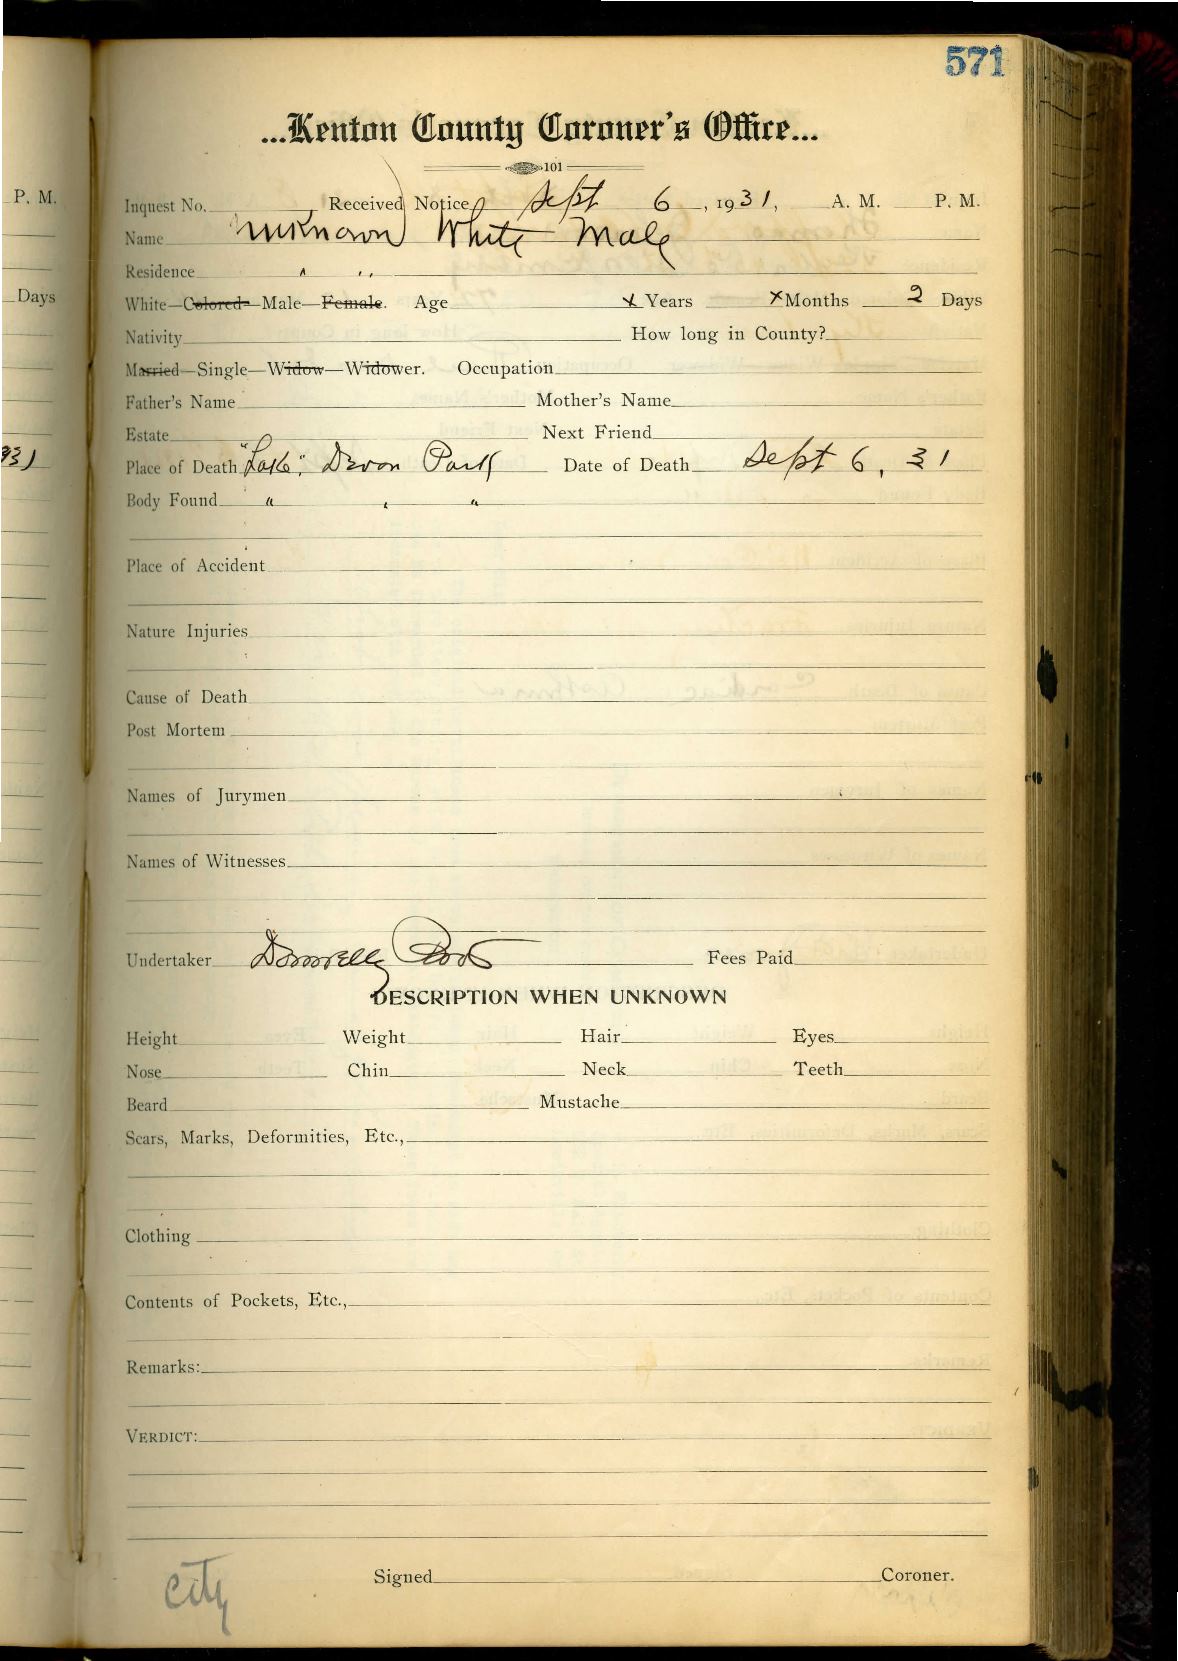 571
...Kenton County Coroner's Office...
101
P. M.
Inquest No. Received Notice Sept 6, 1931, A. M. P. M.
Name Unknown White Male
Residence " "
Days
White—Colored—Male—Female. Age x Years x Months 2 Days
Nativity How long in County?
Married—Single—Widow—Widower. Occupation
Father's Name Mother's Name
Estate Next Friend
931
Place of Death "Lake", Devon Park Date of Death Sept 6, 31
Body Found " " "
Place of Accident
Nature Injuries
Cause of Death
Post Mortem
Names of Jurymen
Names of Witnesses
Undertaker Donnelly Fees Paid
DESCRIPTION WHEN UNKNOWN
Height Weight Hair Eyes
Nose Chin Neck Teeth
Beard Mustache
Scars, Marks, Deformities, Etc.,
Clothing
Contents of Pockets, Etc.,
Remarks:
VERDICT:
City
Signed Coroner.